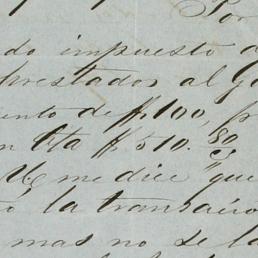 Por
do impuesto d
prestados al Go
iento de $100, p
n Cta $510.80
U. me dice "que
o la transacció
mas no se la